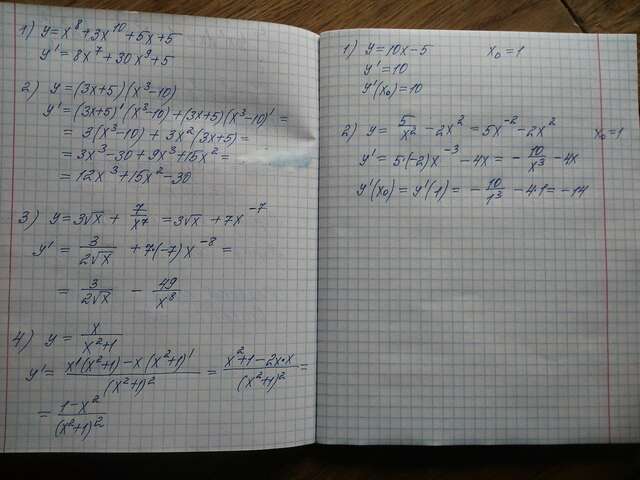 1) y=x⁸+3x¹⁰+5x+5
y'=8x⁷+30x⁹+5
2) y=(3x+5)(x³-10)
y'=(3x+5)'(x³-10)+(3x+5)(x³-10)'=
= 3(x³-10)+3x²(3x+5)=
=3x³-30+9x³+15x²=
=12x³+15x²-30
3) y=3√x+7/x⁷=3√x+7x⁻⁷
y'=3/(2√x)+7·(-7)x⁻⁸=
=3/(2√x)-49/x⁸
4) y=x/(x²+1)
y'=(x'(x²+1)-x(x²+1)')/(x²+1)²=(x²+1-2x·x)/(x²+1)²=
=(1-x²)/(x²+1)²
1) y=10x-5 x₀=1
y'=10
y'(x₀)=10
2) y=5/x²-2x²=5x⁻²-2x² x₀=1
y'=5·(-2)x⁻³-4x=-10/x³-4x
y'(x₀)=y'(1)=-10/1³-4·1=-14